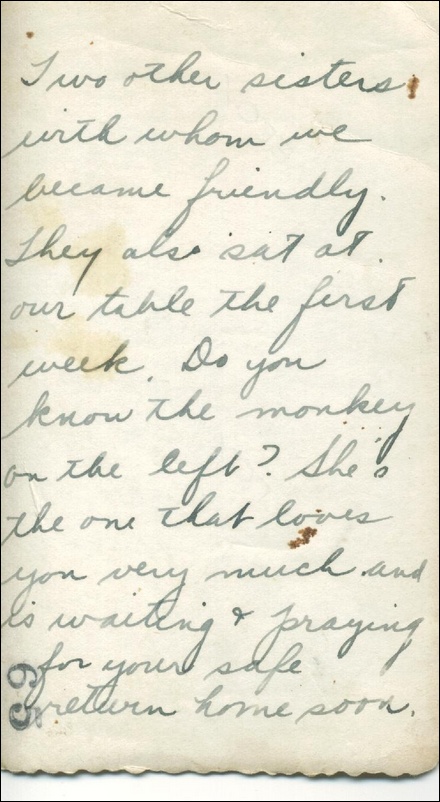 Two other sisters
with whom we
became friendly.
They also sat at
our table the first
week. Do you
know the monkey
on the left? She's
the one that loves
you very much and
is waiting & praying
for your safe
return home soon.
59